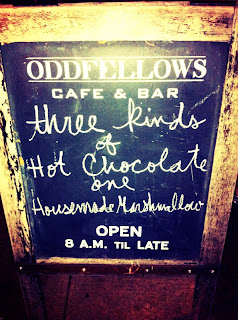 ODDFELLOWS
CAFE & BAR
three kinds
of
Hot Chocolate
one
Housemade Marshmallow
OPEN
8 A.M. TIL LATE